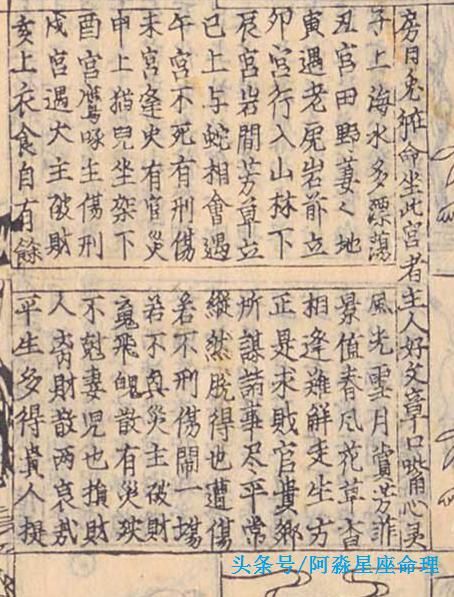 房日兔 命坐此宮者主人好文章口嘴心灵
子上海水多漂蕩風光雪月賞芳菲
丑宮田野萋〻地景值春风花草香
寅遇老虎岩前立相逢難解 生方
卯宮行入山林下正是求敗官貴鄉
辰宮岩間芳草立所謀諸事尽平常
巳上与蛇相會遇縱然脫得也遭傷
午宮不死有刑傷若不刑傷鬧一場
未宮逢火有官災若不 災主破財
申上猫兒坐架下魂飛魄散有災殃
酉宮鷹啄主傷刑不尅妻児也損財
戌宮遇犬主破財人 財散兩哀哉
亥上衣食自有餘平生多得貴人
头条号/阿淼星座命理